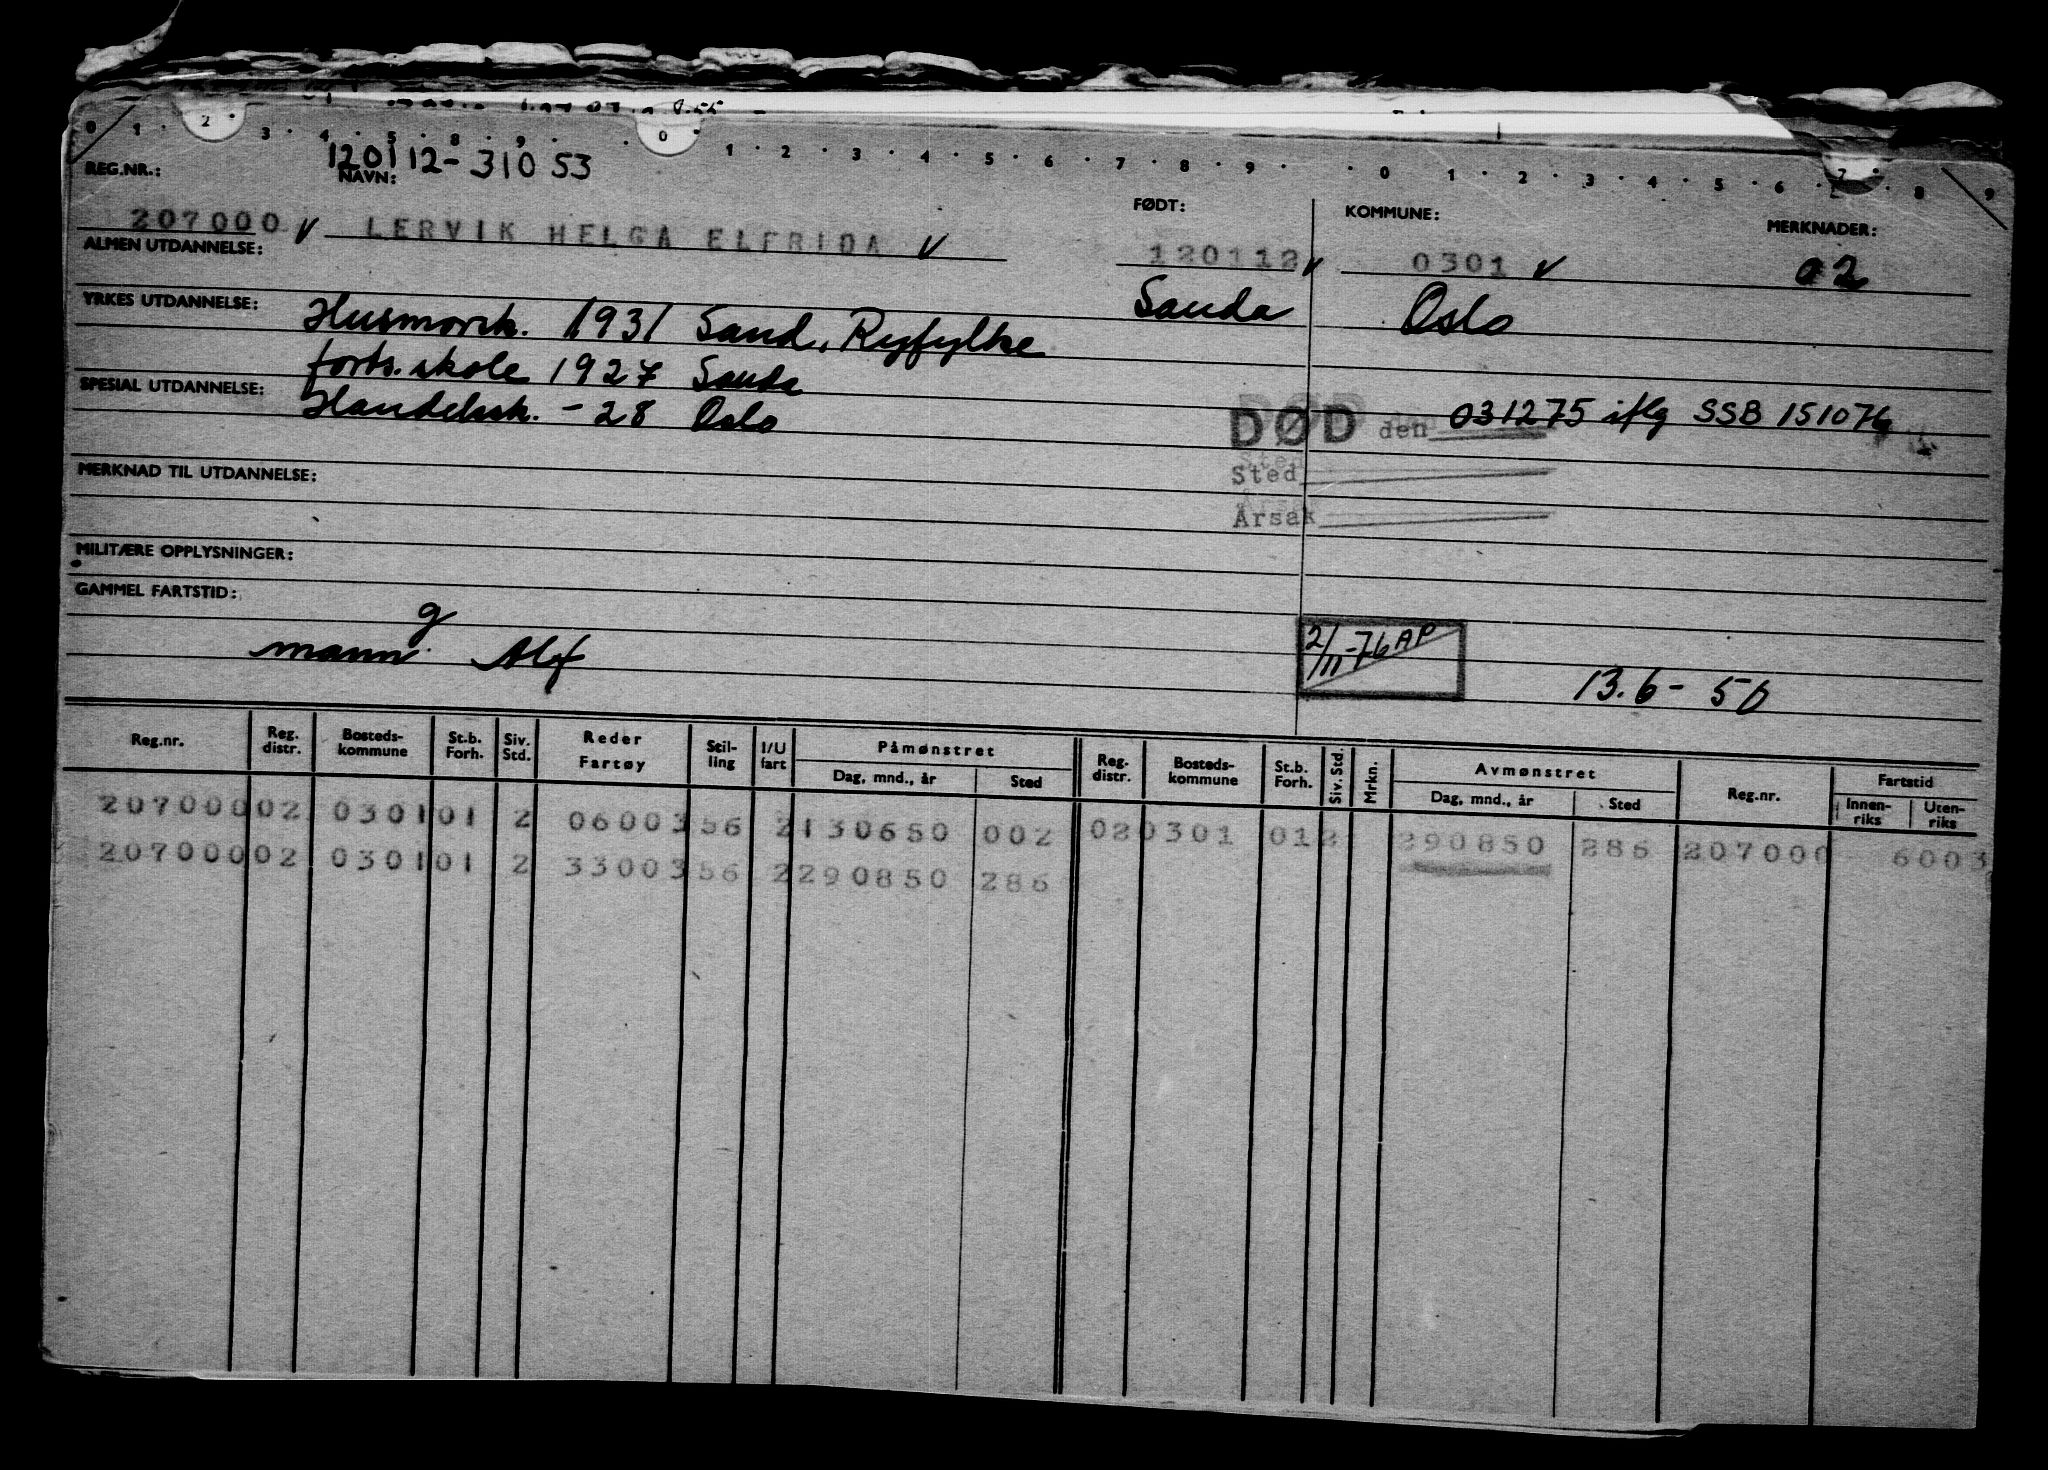 0 · 1 · 2 · 3 · 4 · 5 · 8 · 9 · 0 · 1 · 2 · 3 · 4 · 5 · 6 · 7 · 8 · 9 · · 0 · 1 · 2 · 3 · 4 · 5 · 6 · 7 · 8 · 9
120112-31053
REG.NR.: NAVN: FØDT: KOMMUNE: MERKNADER:
207000 LERVIK HELGA ELFRIDA 120112 0301 02
ALMEN UTDANNELSE:
Sauda Oslo
YRKES UTDANNELSE: Husmorsk. 1931 Sand, Ryfylke
forts.skole 1927 Sauda
SPESIAL UTDANNELSE: Handelssk. - 28 Oslo
DØD den 031275 iflg SSB 151076
Sted
Årsak
MERKNAD TIL UTDANNELSE:
MILITÆRE OPPLYSNINGER:
GAMMEL FARTSTID:
g
mann Alf
2/11-76 AP
13.6-50
Reg.nr. Reg. distr. Bosteds-kommune St.b. Forh. Siv. Std. Reder Fartøy Stil-ling I/U fart Påmønstret Dag, mnd., år Sted Reg. distr. Bosteds-kommune St.b. Forh. Siv. Std. Mrkn. Avmønstret Dag, mnd., år Sted Reg.nr. Fartstid Innen-riks Uten-riks
207000 02 0301 01 2 06003 56 2 130650 002 02 0301 01 2 290850 286 207000 6003
207000 02 0301 01 2 33003 56 2 290850 286